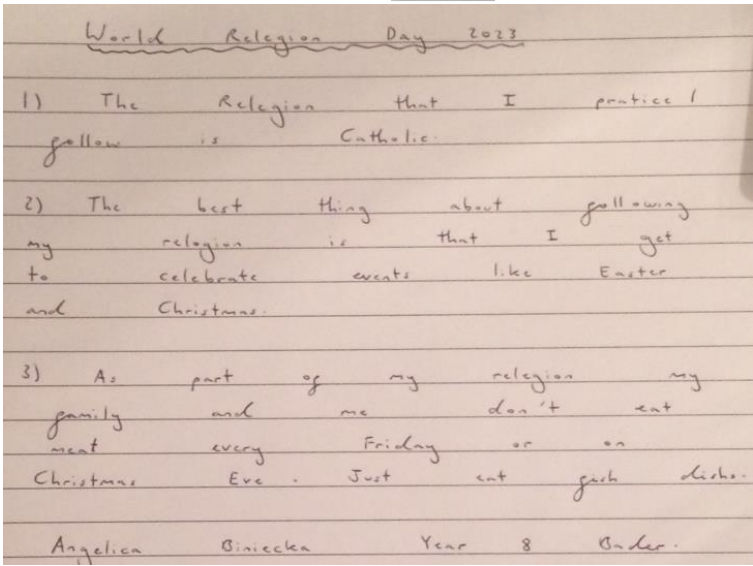 World Relegion Day 2023
1) The Relegion that I pratice /
follow is Catholic.
2) The best thing about following
my relogion is that I get
to celebrate events like Easter
and Christmas.
3) As part of my relegion my
family and me don't eat
meat every Friday or on
Christmas Eve. Just eat fish dishs.
Angelica Biniecka Year 8 Bader.